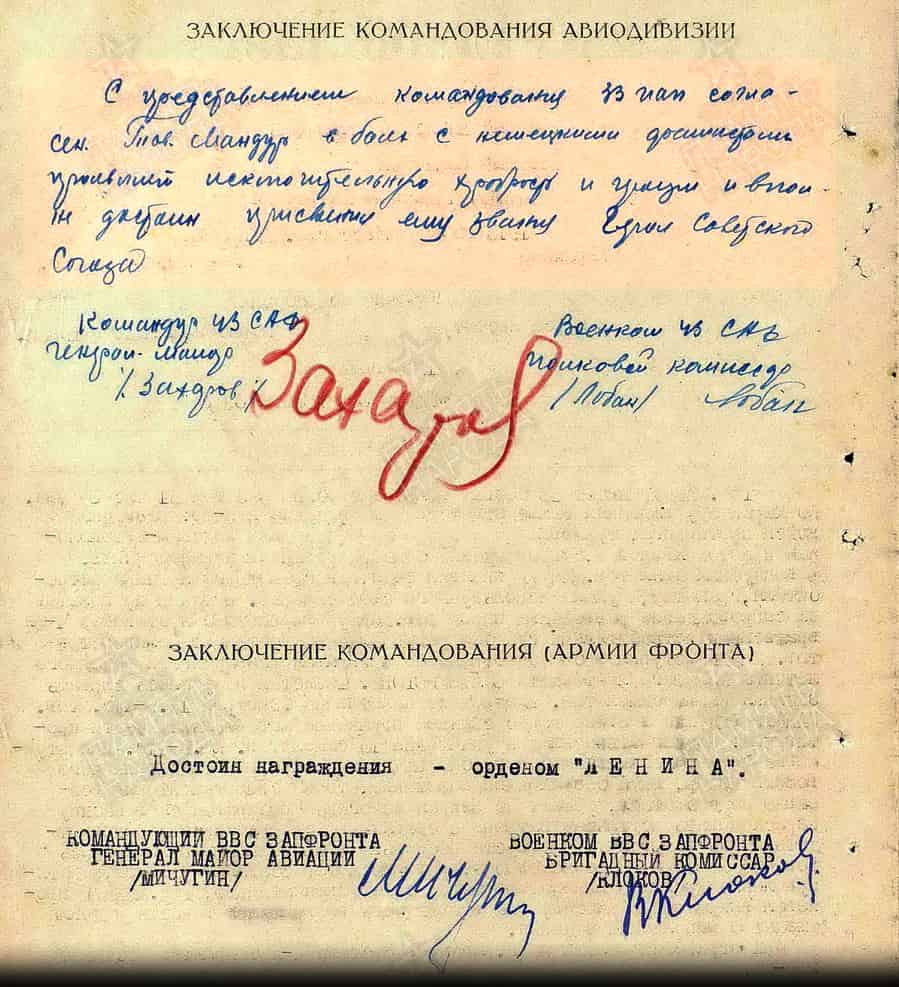 ЗАКЛЮЧЕНИЕ КОМАНДОВАНИЯ АВИОДИВИЗИИ
С представлением командования ІАП согла-
сен. Тов. Мандур в боях с немецкими фашистами
проявил исключительную храбрость и и вполне
достоин присвоения ему звания Героя Советского
Союза
Командир 43 САД
Генерал-майор
/Захаров/
Захаров
Военком 43 САД
полковой комиссар
/Лобан/ Лобан
ЗАКЛЮЧЕНИЕ КОМАНДОВАНИЯ (АРМИИ ФРОНТА)
Достоин награждения - орденом "ЛЕНИНА".
КОМАНДУЮЩИЙ ВВС ЗАПФРОНТА
ГЕНЕРАЛ МАЙОР АВИАЦИИ
/МИЧУГИН/
Мичугин
ВОЕНКОМ ВВС ЗАПФРОНТА
БРИГАДНЫЙ КОМИССАР
/КЛОКОВ
ВКлоков
ПАМЯТЬ
НАРОДА